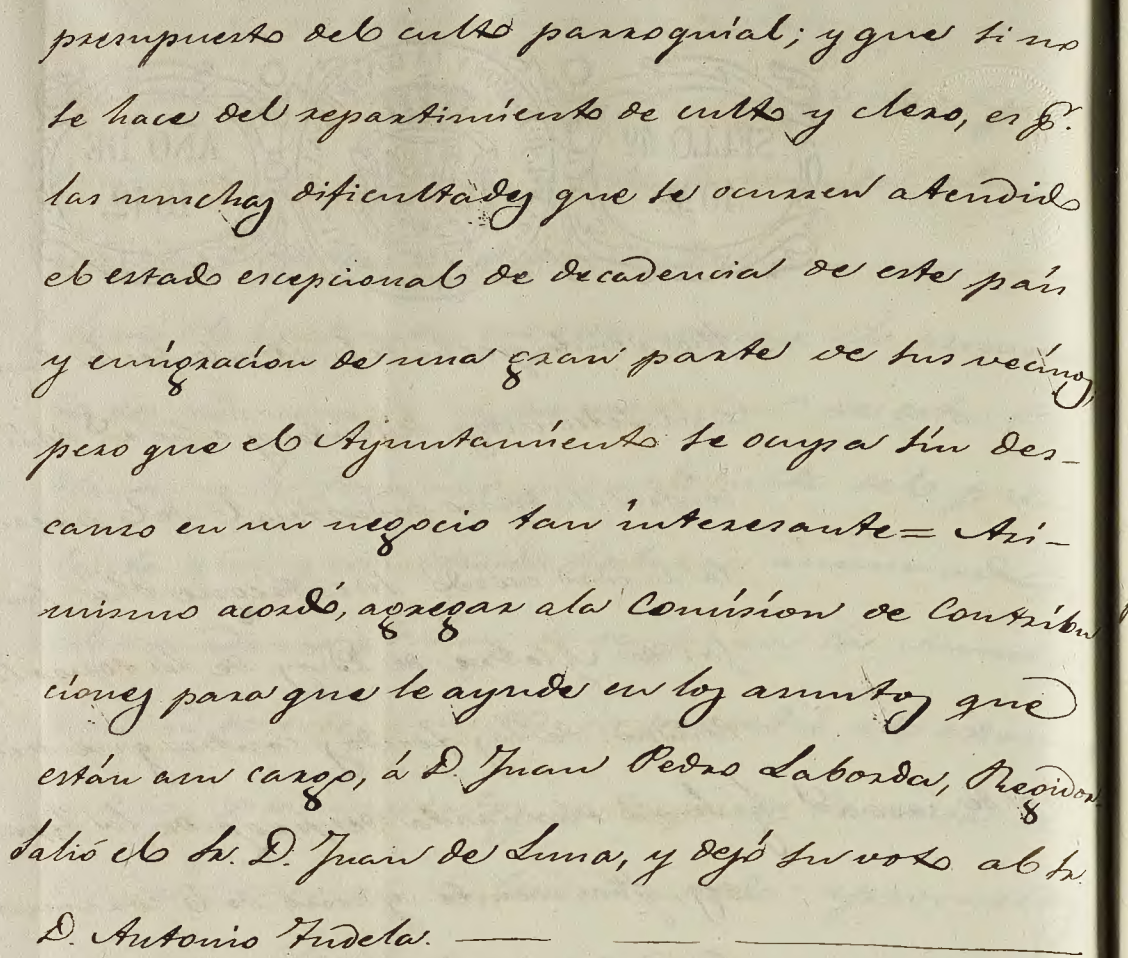 presupuesto del culto parroquial; y que si no
se hace del repartimiento de culto y clero, es pr.
las muchas dificultades que se ocurren atendido
el estado escepcional de decadencia de este pais
y emigracion de una gran parte de sus vecinos,
pero que el Ayuntamiento se ocupa sin des-
canso en un negocio tan interesante = Asi-
mismo acordó, agregar ala Comision de Contribu
ciones para que le ayude en los asuntos que
están asu cargo, á D. Juan Pedro Laborda, Regidor.
Salió el Sr. D. Juan de Luna, y dejó su voto al Sr.
D. Antonio Tudela.